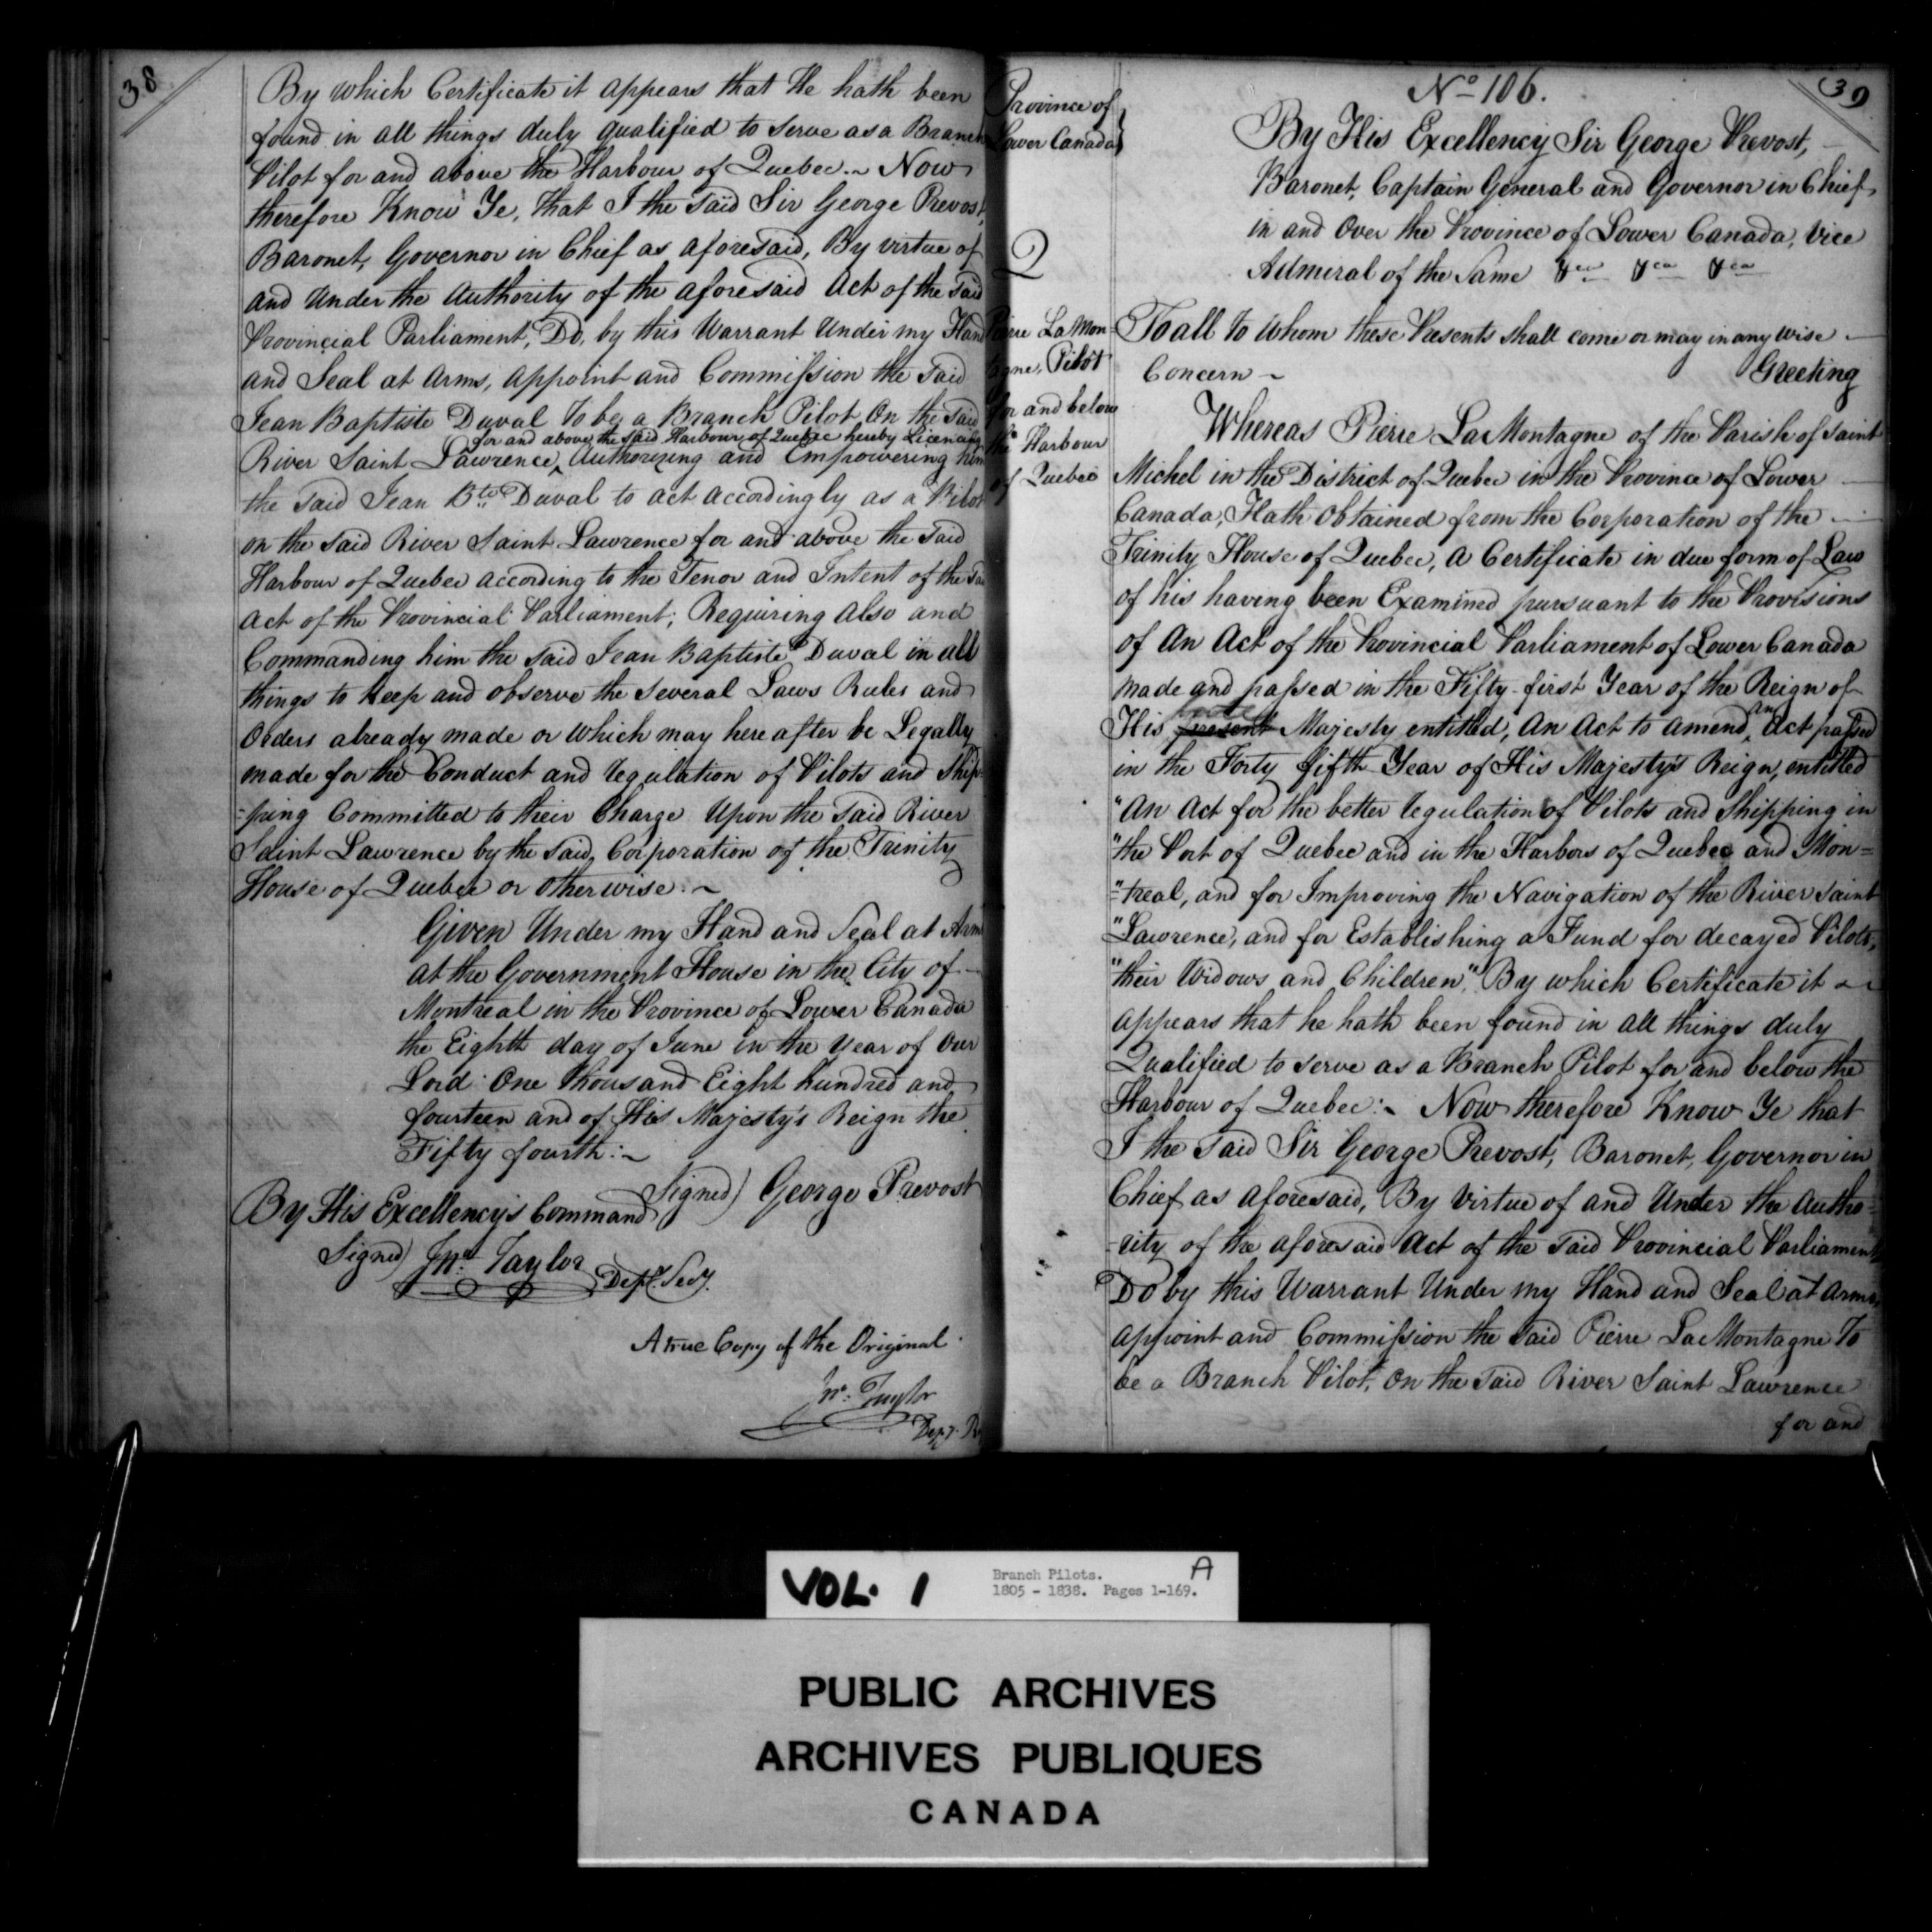 38
By which Certificate it appears that He hath been
found in all things duly qualified to serve as a Branch
Pilot for and above the Harbour of Quebec.~ Now
therefore Know Ye, that I the said Sir George Prevost,
Baronet, Governor in Chief as aforesaid, By virtue of
and Under the Authority of the aforesaid Act of the said
Provincial Parliament, Do, by this Warrant Under my Hand
and Seal at Arms, appoint and Commission the said
Jean Baptiste Duval to be a Branch Pilot On the said
for and above the said Harbour of Quebec hereby Licencing
River Saint Lawrence, Authorizing and Empowering him
the said Jean Bte. Duval to act accordingly as a Pilot
on the said River Saint Lawrence for and above the said
Harbour of Quebec according to the Tenor and Intent of the
Act of the Provincial Parliament; Requiring also and
Commanding him the said Jean Baptiste Duval in all
things to keep and observe the several Laws Rules and
Orders already made or which may hereafter be Legally
made for the Conduct and regulation of Pilots and Ship=
=ping Committed to their Charge Upon the said River
Saint Lawrence by the said Corporation of the Trinity
House of Quebec or otherwise.~
Given Under my Hand and Seal at Arms
at the Government House in the City of
Montreal in the Province of Lower Canada
the Eighth day of June in the Year of Our
Lord One thousand Eight hundred and
fourteen and of His Majesty's Reign the
Fifty fourth:~
Signed) George Prevost
By His Excellency's Command
Signed) Jno. Taylor
Depy. Secy.
A true Copy of the Original.
Jno. Taylor
Depy.
Province of
Lower Canada}
Pierre LaMon
tagne, Pilot
for and below
the Harbour
of Quebec
39
No. 106.
By His Excellency Sir George Prevost,
Baronet, Captain General and Governor in Chief
in and Over the Province of Lower Canada, Vice
Admiral of the Same &ca &ca &ca
To all to whom these Presents shall come or may in any wise
Concern ~ Greeting
Whereas Pierre LaMontagne of the Parish of Saint
Michel in the District of Quebec in the Province of Lower
Canada, Hath Obtained from the Corporation of the
Trinity House of Quebec, a Certificate in due form of Law
of his having been Examined pursuant to the Provisions
of An Act of the Provincial Parliament of Lower Canada
made and passed in the Fifty-first Year of the Reign of
His present Majesty entitled, An Act to amend an Act passed
in the Forty fifth Year of His Majesty's Reign, entitled
"An Act for the better regulation of Pilots and Shipping in
"the Port of Quebec and in the Harbors of Quebec and Mon=
"=treal, and for Improving the Navigation of the River Saint
"Lawrence, and for Establishing a Fund for decayed Pilots,
"their Widows and Children". By which Certificate it
appears that he hath been found in all things duly
Qualified to serve as a Branch Pilot for and below the
Harbour of Quebec:~ Now therefore Know Ye that
I the said Sir George Prevost, Baronet, Governor in
Chief as aforesaid, By virtue of and Under the Autho=
=rity of the aforesaid Act of the said Provincial Parliament
Do by this Warrant Under my Hand and Seal at Arms,
appoint and Commission the said Pierre LaMontagne To
be a Branch Pilot, On the said River Saint Lawrence
for and
VOL. 1
Branch Pilots.
1805 - 1838. Pages 1-169.
A
PUBLIC ARCHIVES
ARCHIVES PUBLIQUES
CANADA